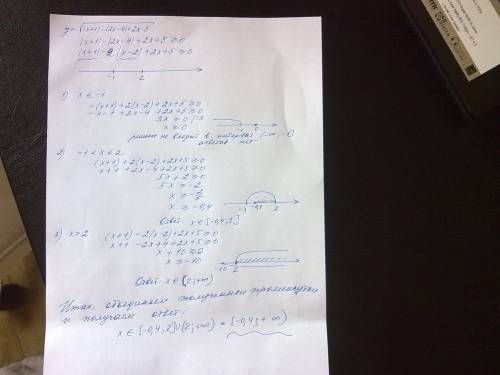 y = √(|x+1| - |2x-4| + 2x-5
|x+1| - |2x-4| + 2x+5 ≥ 0
|x+1| - 2|x-2| + 2x+5 ≥ 0
-1 2
1) x ≤ -1
-(x+1) + 2(x-2) + 2x+5 ≥ 0
-x-1 + 2x-4 + 2x+5 ≥ 0
3x ≥ 0 |:3
x ≥ 0
-1 0
решение не входит в интервал (-∞; -1]
ответов нет
2) -1 < x < 2
(x+1) + 2(x-2) + 2x+5 ≥ 0
x+1 + 2x-4 + 2x+5 ≥ 0
5x + 2 ≥ 0
5x ≥ -2
x ≥ -2/5
x ≥ -0,4
-1 -0,4 2
Ответ: x ∈ [-0,4; 2]
3) x > 2 (x+1) - 2(x-2) + 2x+5 ≥ 0
x+1 - 2x+4 + 2x+5 ≥ 0
x + 10 ≥ 0
x ≥ -10
-10 2
Ответ: x ∈ (2; +∞)
Итак, объединяем полученные промежутки
и получаем ответ:
x ∈ [-0,4; 2] ∪ (2; +∞) = [-0,4; +∞)